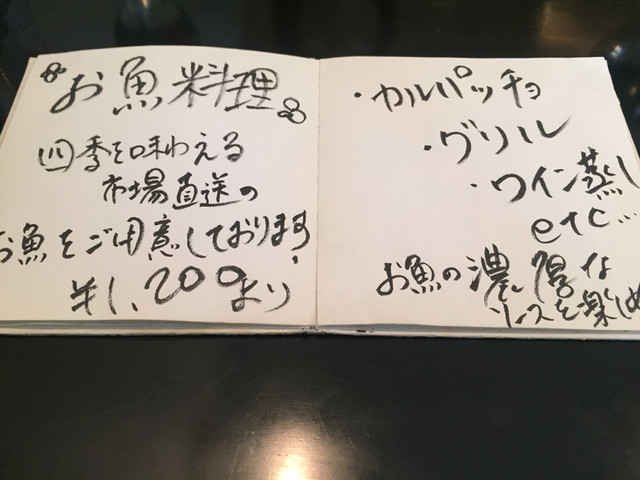 お魚料理
四季を味わえる
市場直送の
お魚をご用意しております、
¥1,200より
・カルパッチョ
・グリル
・ワイン蒸し
etc...
お魚の濃厚な
ソースを楽しめ